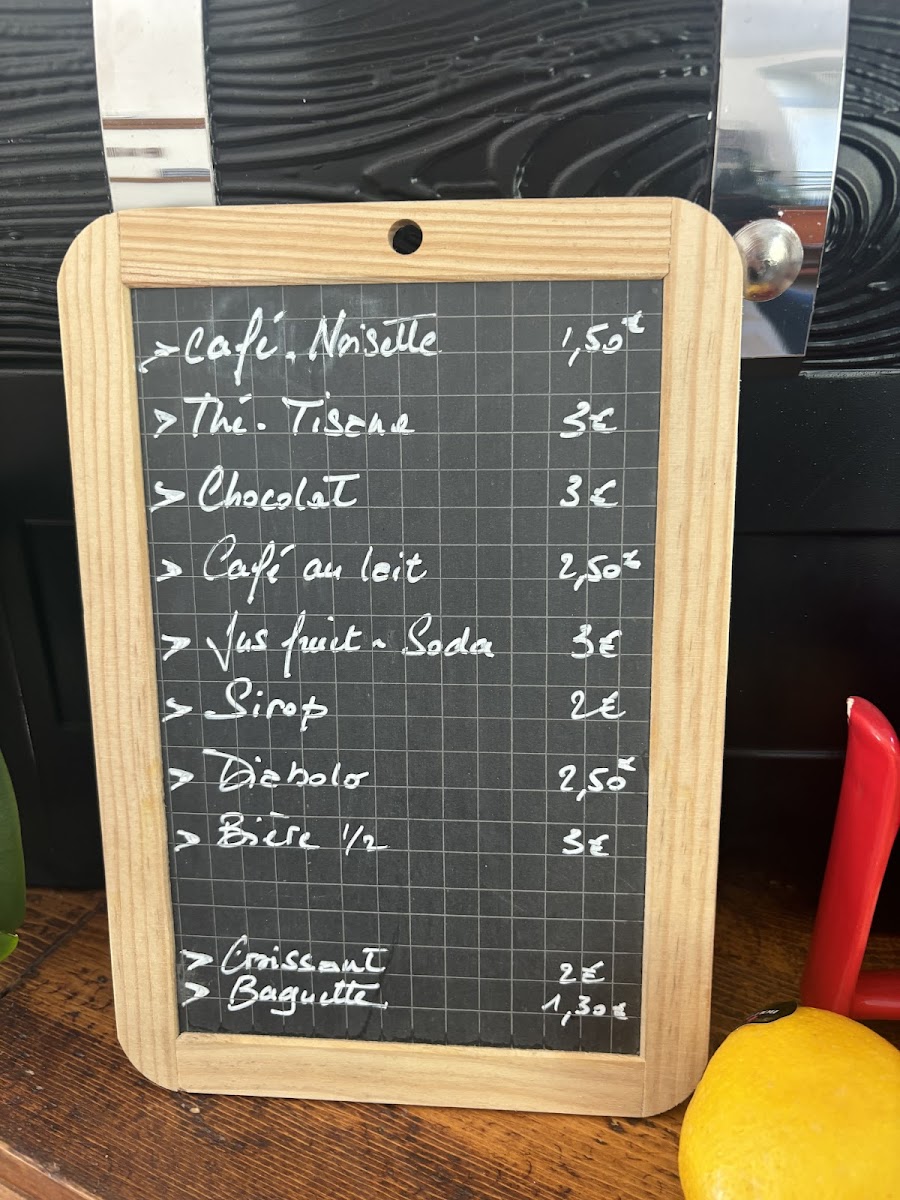 > Café. Noisette 1,50€
> Thé. Tisane 3€
> Chocolat 3€
> Café au lait 2,50€
> Jus fruit - Soda 3€
> Sirop 2€
> Diabolo 2,50€
> Bière 1/2 3€
> Croissant 2€
> Baguette. 1,30€